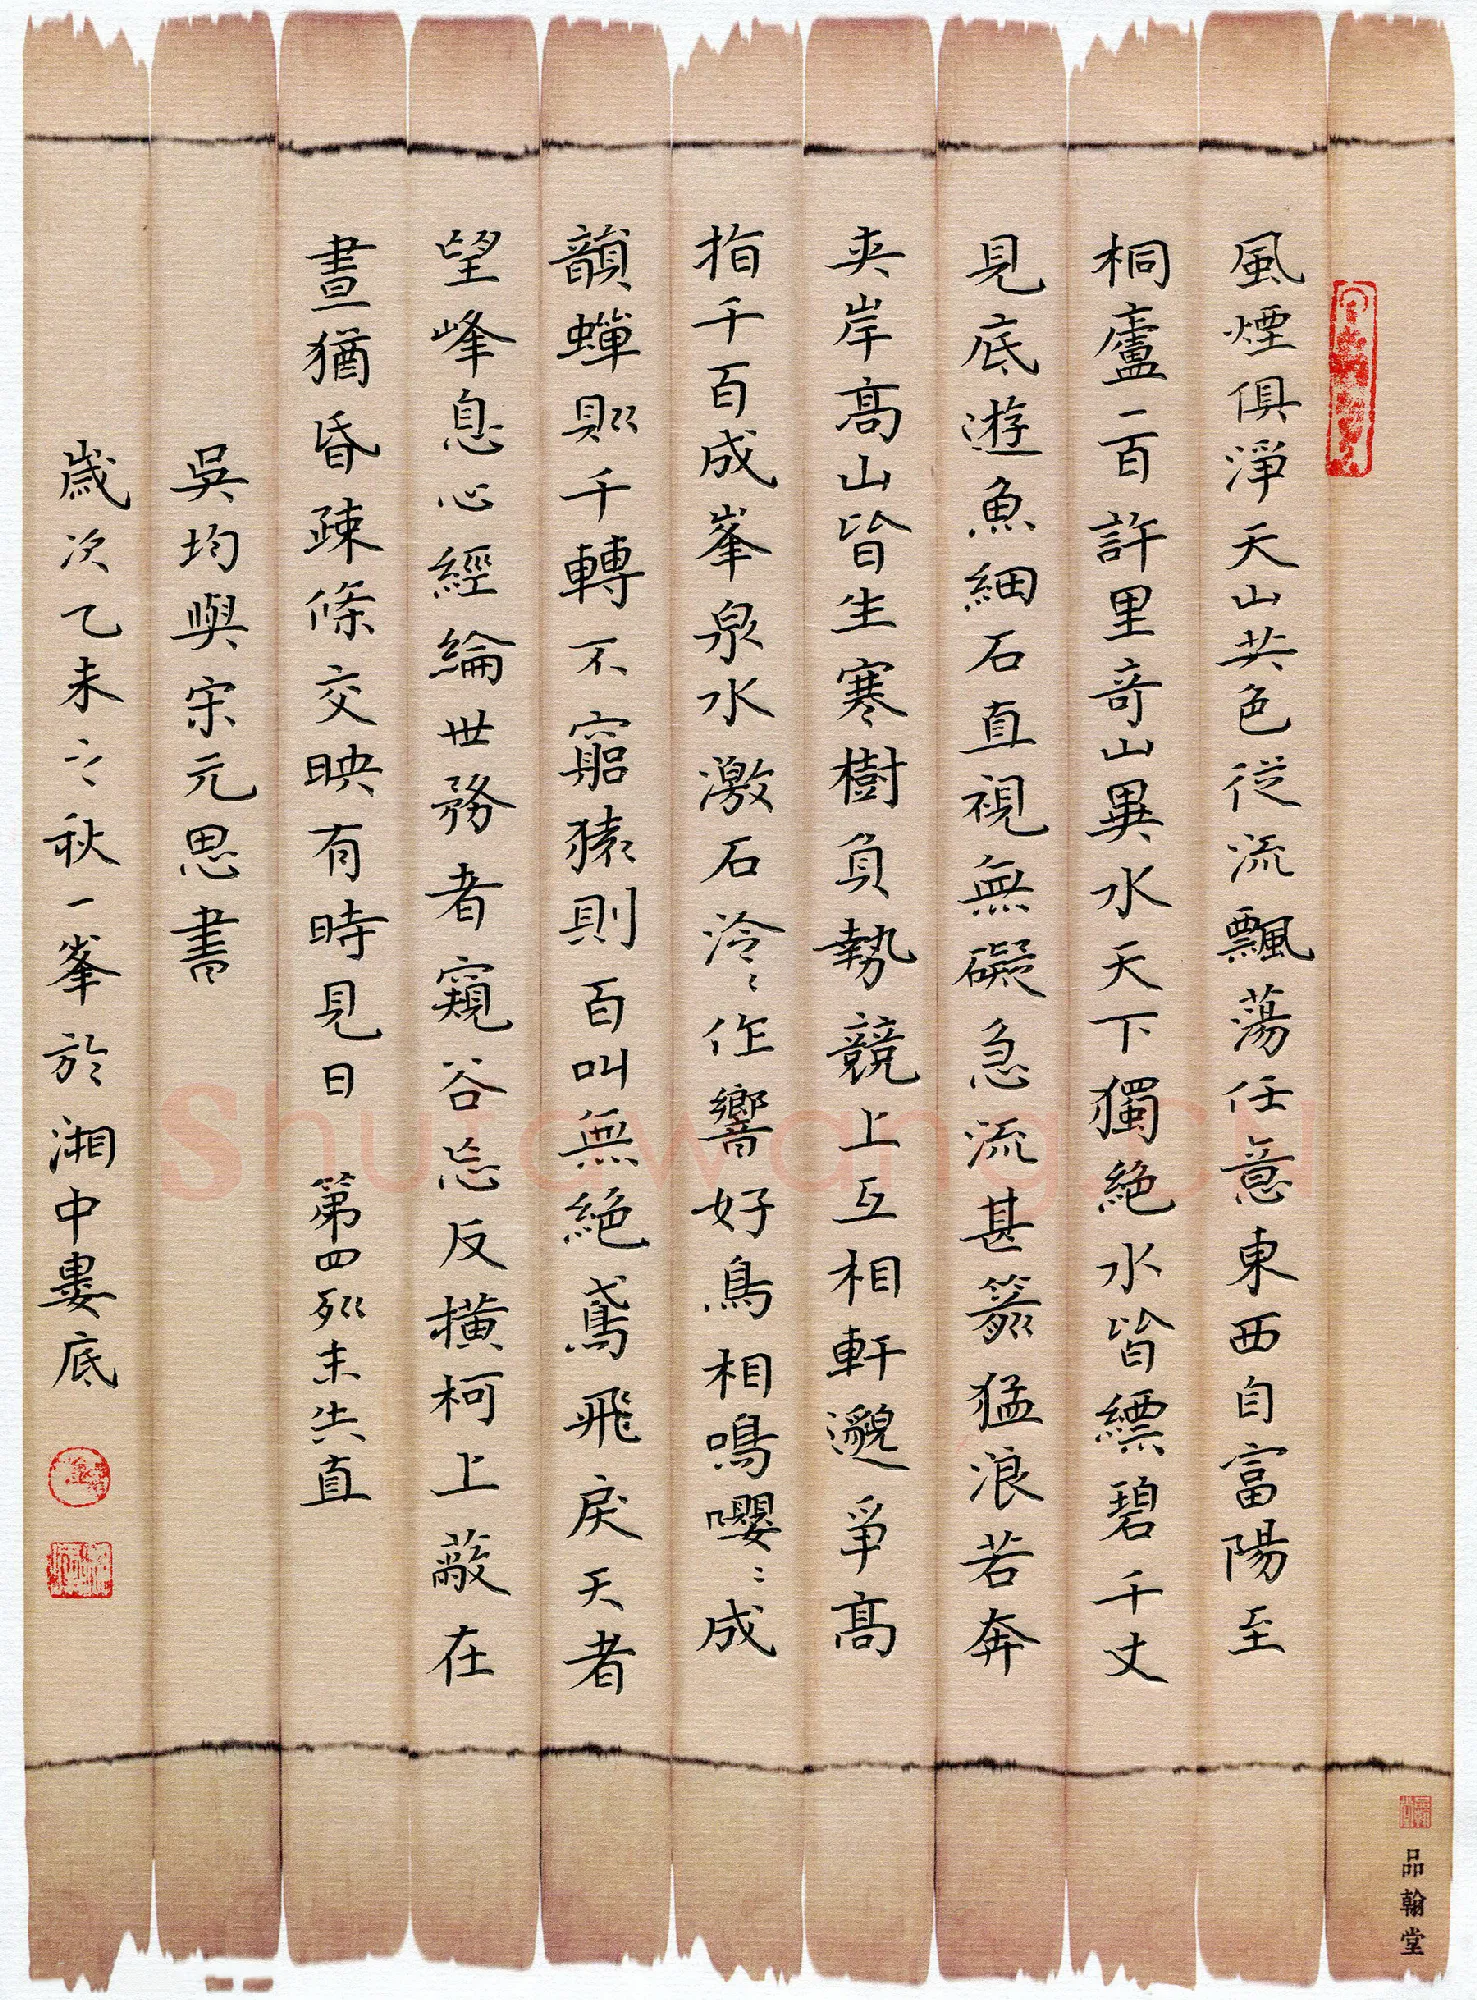 風煙俱淨天山共色從流飄蕩任意東西自富陽至
桐廬一百許里奇山異水天下獨絶水皆縹碧千丈
見底遊魚細石直視無礙急流甚箭猛浪若奔
夾岸高山皆生寒樹負勢競上互相軒邈爭高
指千百成峯泉水激石泠〻作響好鳥相鳴嚶〻成
韻蟬則千轉不窮猿則百叫無絶鳶飛戾天者
望峰息心經綸世務者窺谷忘反橫柯上蔽在
晝猶昏疎條交映有時見日 第四列末失直
吳均與宋元思書
歲次乙未之秋一峯於湘中婁底
品翰堂
Shufawang.cn